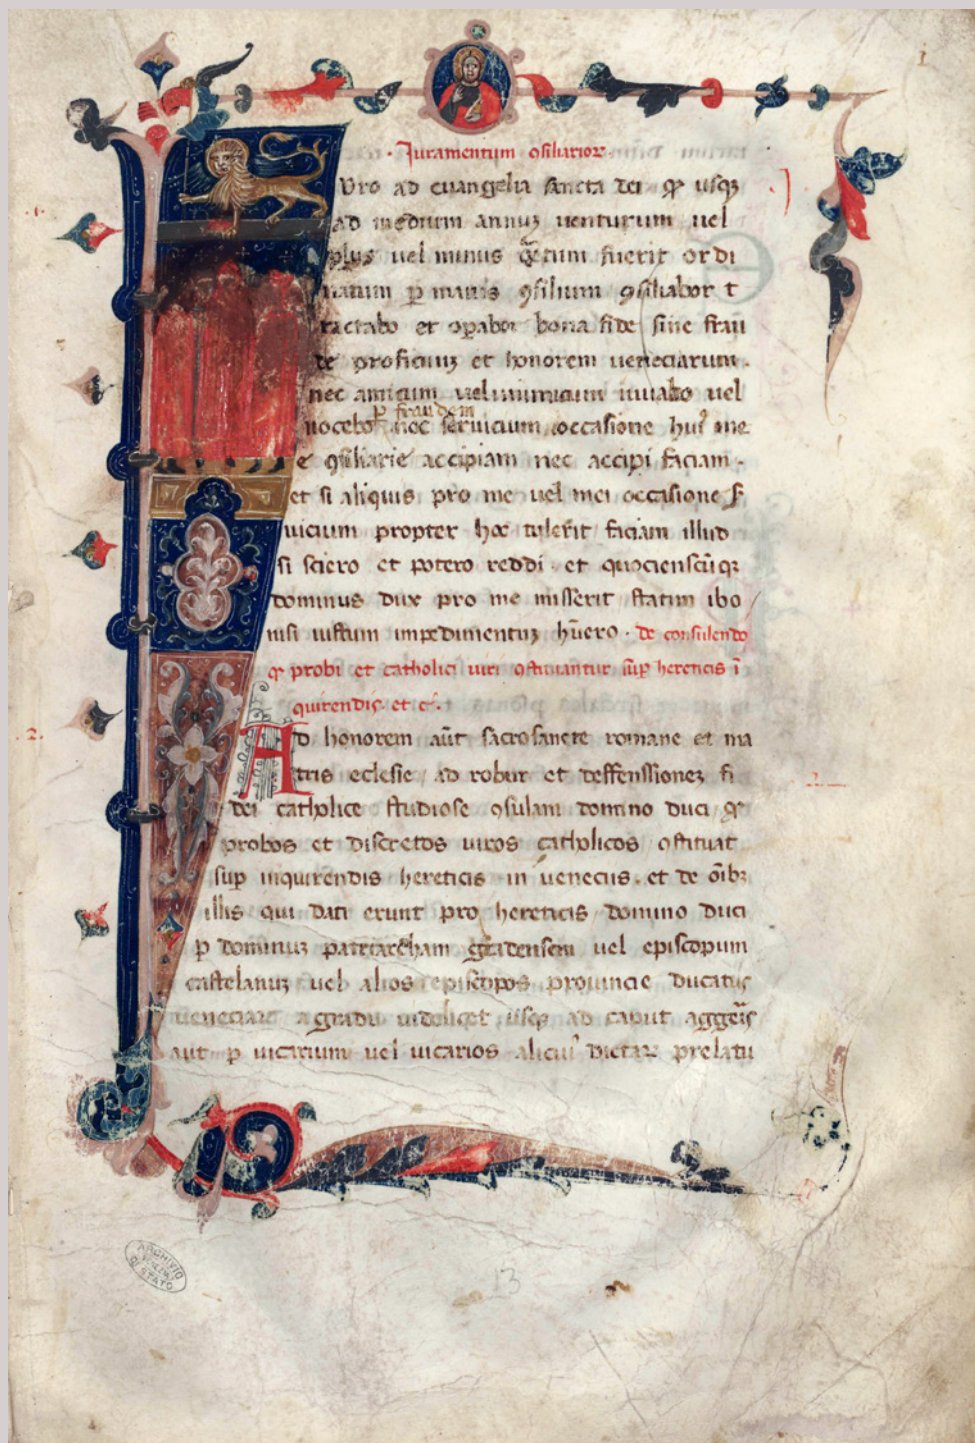 1
Juramentum ꝯsiliarioꝝ.
Uro ad euangelia sancta dei ꝙ usqꝫ
ad medium annuꝫ uenturum uel
plus uel minus qͣtum fuerit ordi
natum ꝑ maius ꝯsilium ꝯsiliabor t
ractabo et oꝑabor bona fide sine frau
de proficuuꝫ et honorem ueneciarum.
nec amicum uel inimicum iuuabo uel
ꝑ fraudem
nocebo nec seruicium occasione huiꝰ me
e ꝯsiliarie accipiam nec accipi faciam.
et si aliquis pro me uel mei occasione s̄
uicium propter hoc tulerit faciam illud
si sciero et potero reddi. et quocienscūqꝫ
dominus dux pro me misserit statim ibo
nisi iustum impedimentuꝫ hūero. de consulendo
ꝙ probi et catholici uiri ꝯstituantur suꝑ hereticis ī
quirendis. et cͨ.
2.
Ad honorem aūt sacrosancte romane et ma
tris eclesie ad robur et deffenssioneꝫ fi
dei catholice studiose ꝯsulam domino duci ꝙ
probos et discretos uiros catholicos ꝯstituat
suꝑ inquirendis hereticis in ueneciis. et de oībꝫ
illis qui dati erunt pro hereticis domino duci
ꝑ dominuꝫ patriarcham gradensem uel episcopum
castelanuꝫ uel alios episcopos prouincie ducatus
ueneciaꝝ a gradu uidelicet usqꝫ ad caput aggeris
aut ꝑ uicarium uel uicarios alicuiꝰ dictaꝝ prelatu
ARCHIVIO
DI STATO
13